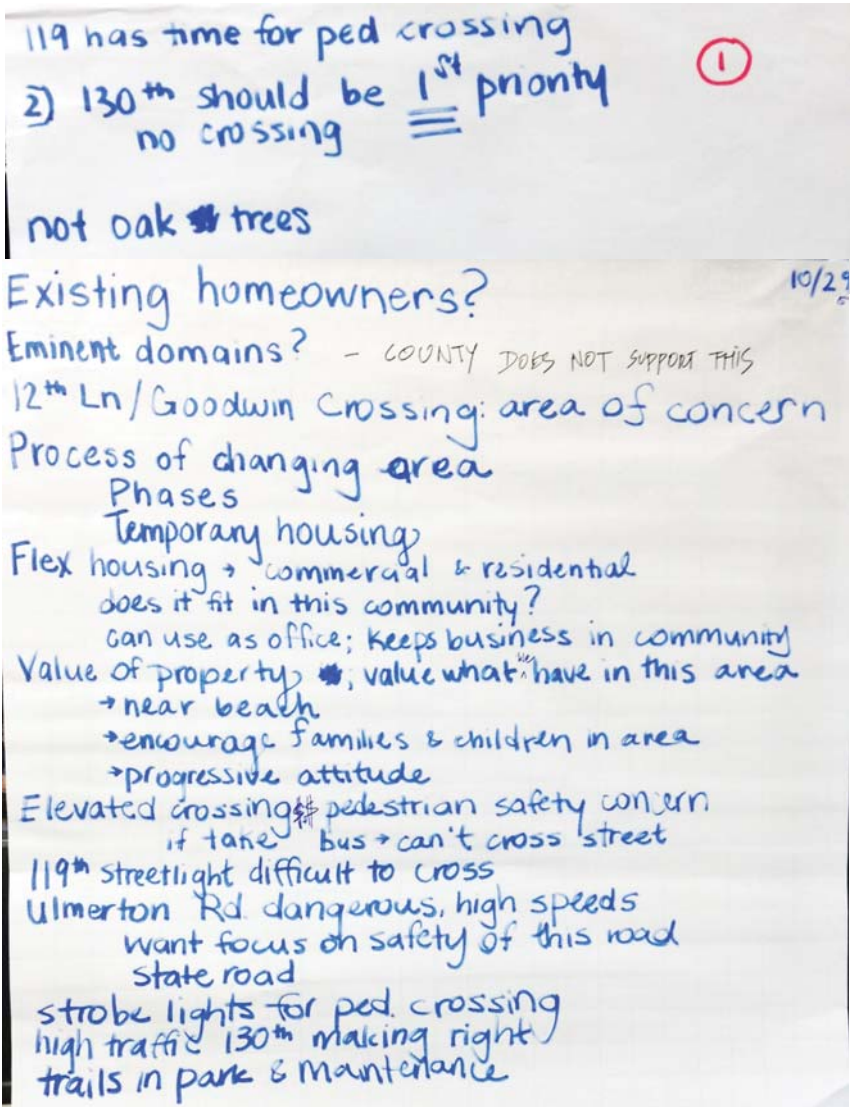 119 has time for ped crossing
1
2) 130th should be 1st priority
no crossing
not oak trees
10/29
Existing homeowners?
Eminent domains? - COUNTY DOES NOT SUPPORT THIS
12th Ln/Goodwin Crossing: area of concern
Process of changing area
Phases
Temporary housing
Flex housing → commercial & residential
does it fit in this community?
can use as office; keeps business in community
Value of property, ; value what we have in this area
→ near beach
→ encourage families & children in area
→ progressive attitude
Elevated crossing pedestrian safety concern
if take bus → can't cross street
119th streetlight difficult to cross
Ulmerton Rd. dangerous, high speeds
want focus on safety of this road
State road
strobe lights for ped. crossing
high traffic 130th making right
trails in park & maintenance